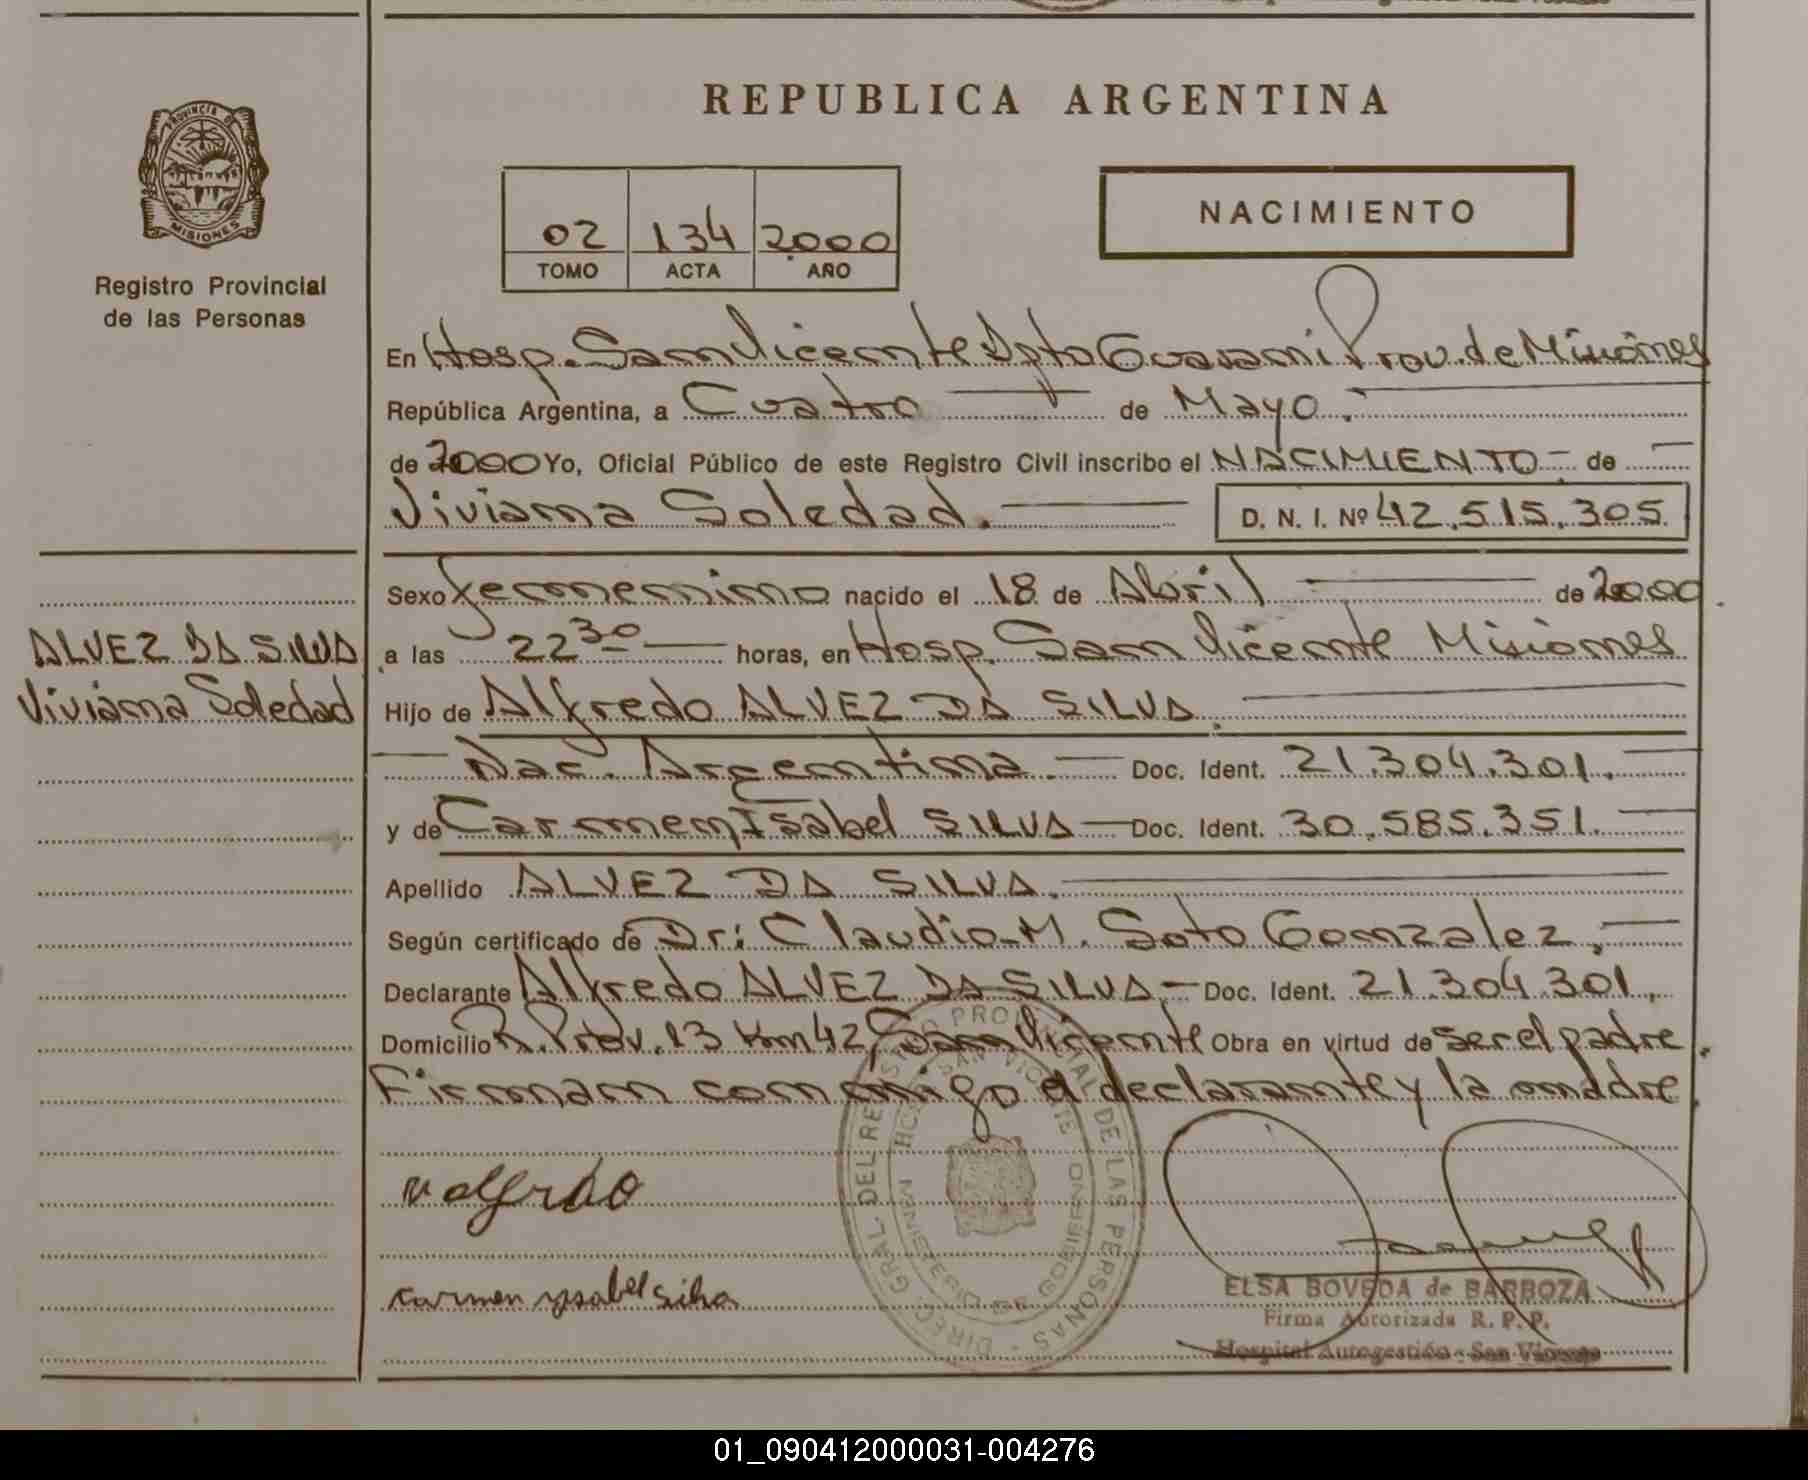 REPUBLICA ARGENTINA
PROVINCIA DE
MISIONES
Registro Provincial
de las Personas
02 134 2000
TOMO ACTA AÑO
NACIMIENTO
En Hosp. San Vicente Dpto Guarani Prov. de Misiones
República Argentina, a Cuatro de Mayo.
de 2000 Yo, Oficial Público de este Registro Civil inscribo el NACIMIENTO de
Viviana Soledad. D. N. I. Nº 42.515.305
Sexo femenino nacido el 18 de Abril de 2000
ALVEZ DA SILVA
Viviana Soledad
a las 22 30 horas, en Hosp. San Vicente Misiones
Hijo de Alfredo ALVEZ DA SILVA.
Nac. Argentina. Doc. Ident. 21.304.301.
y de Carmen Isabel SILVA Doc. Ident. 30.585.351.
Apellido ALVEZ DA SILVA.
Según certificado de Dr: Claudio M. Soto Gonzalez.
Declarante Alfredo ALVEZ DA SILVA. Doc. Ident. 21.304.301.
Domicilio R. Prov. 13 Km 42, San Vicente Obra en virtud de ser el padre
Firman conmigo el declarante y la madre
DIREC. GRAL DEL REGISTRO PROVINCIAL DE LAS PERSONAS
carmen ysabel silva
ELSA BOVEDA de BARBOZA
Firma Autorizada R. P. P.
Hospital Autogestión - San Vicente
01_090412000031-004276